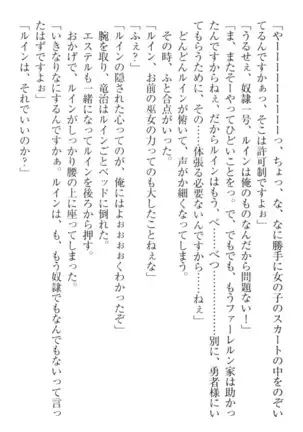 「やーーーーーーーっ、ちょっ、な、なに勝手に女の子のスカートの中をのぞい
てるんですかぁっ、そこは許可制ですよぉ」
「うるせえ、奴隷一号。ルインは俺のものなんだから問題ない！」
「ま、またそーやってひどいことをっ。で、でもでも、もうファーレルン家は助かっ
たんですからねぇ、だからルインはもう、べ……べつ………別に、勇者様にい
てもらうために、その……体張る必要ないんですから……ねぇ」
どんどんルインが俯いて、声がか細くなってしまう。
その時、ふと合点がいった。
「ルイン、お前の巫女の力っても大したことねぇな」
「ふぇ？」
「ルインの隠された心ってのが、俺にはよぉぉぉぉくわかったぞ」
腕を取り、竜治はルインごとベッドに倒れた。
エステルも一緒になってルインを後ろから押す。
おかげで、ルインがしっかり腰の上に座ってしまった。
「いきなりなにするんですかぁ。ルインは、も、もう奴隷でもなんでもないって言っ
たはずですよぉ」
「ルインは、それでいいのか？」